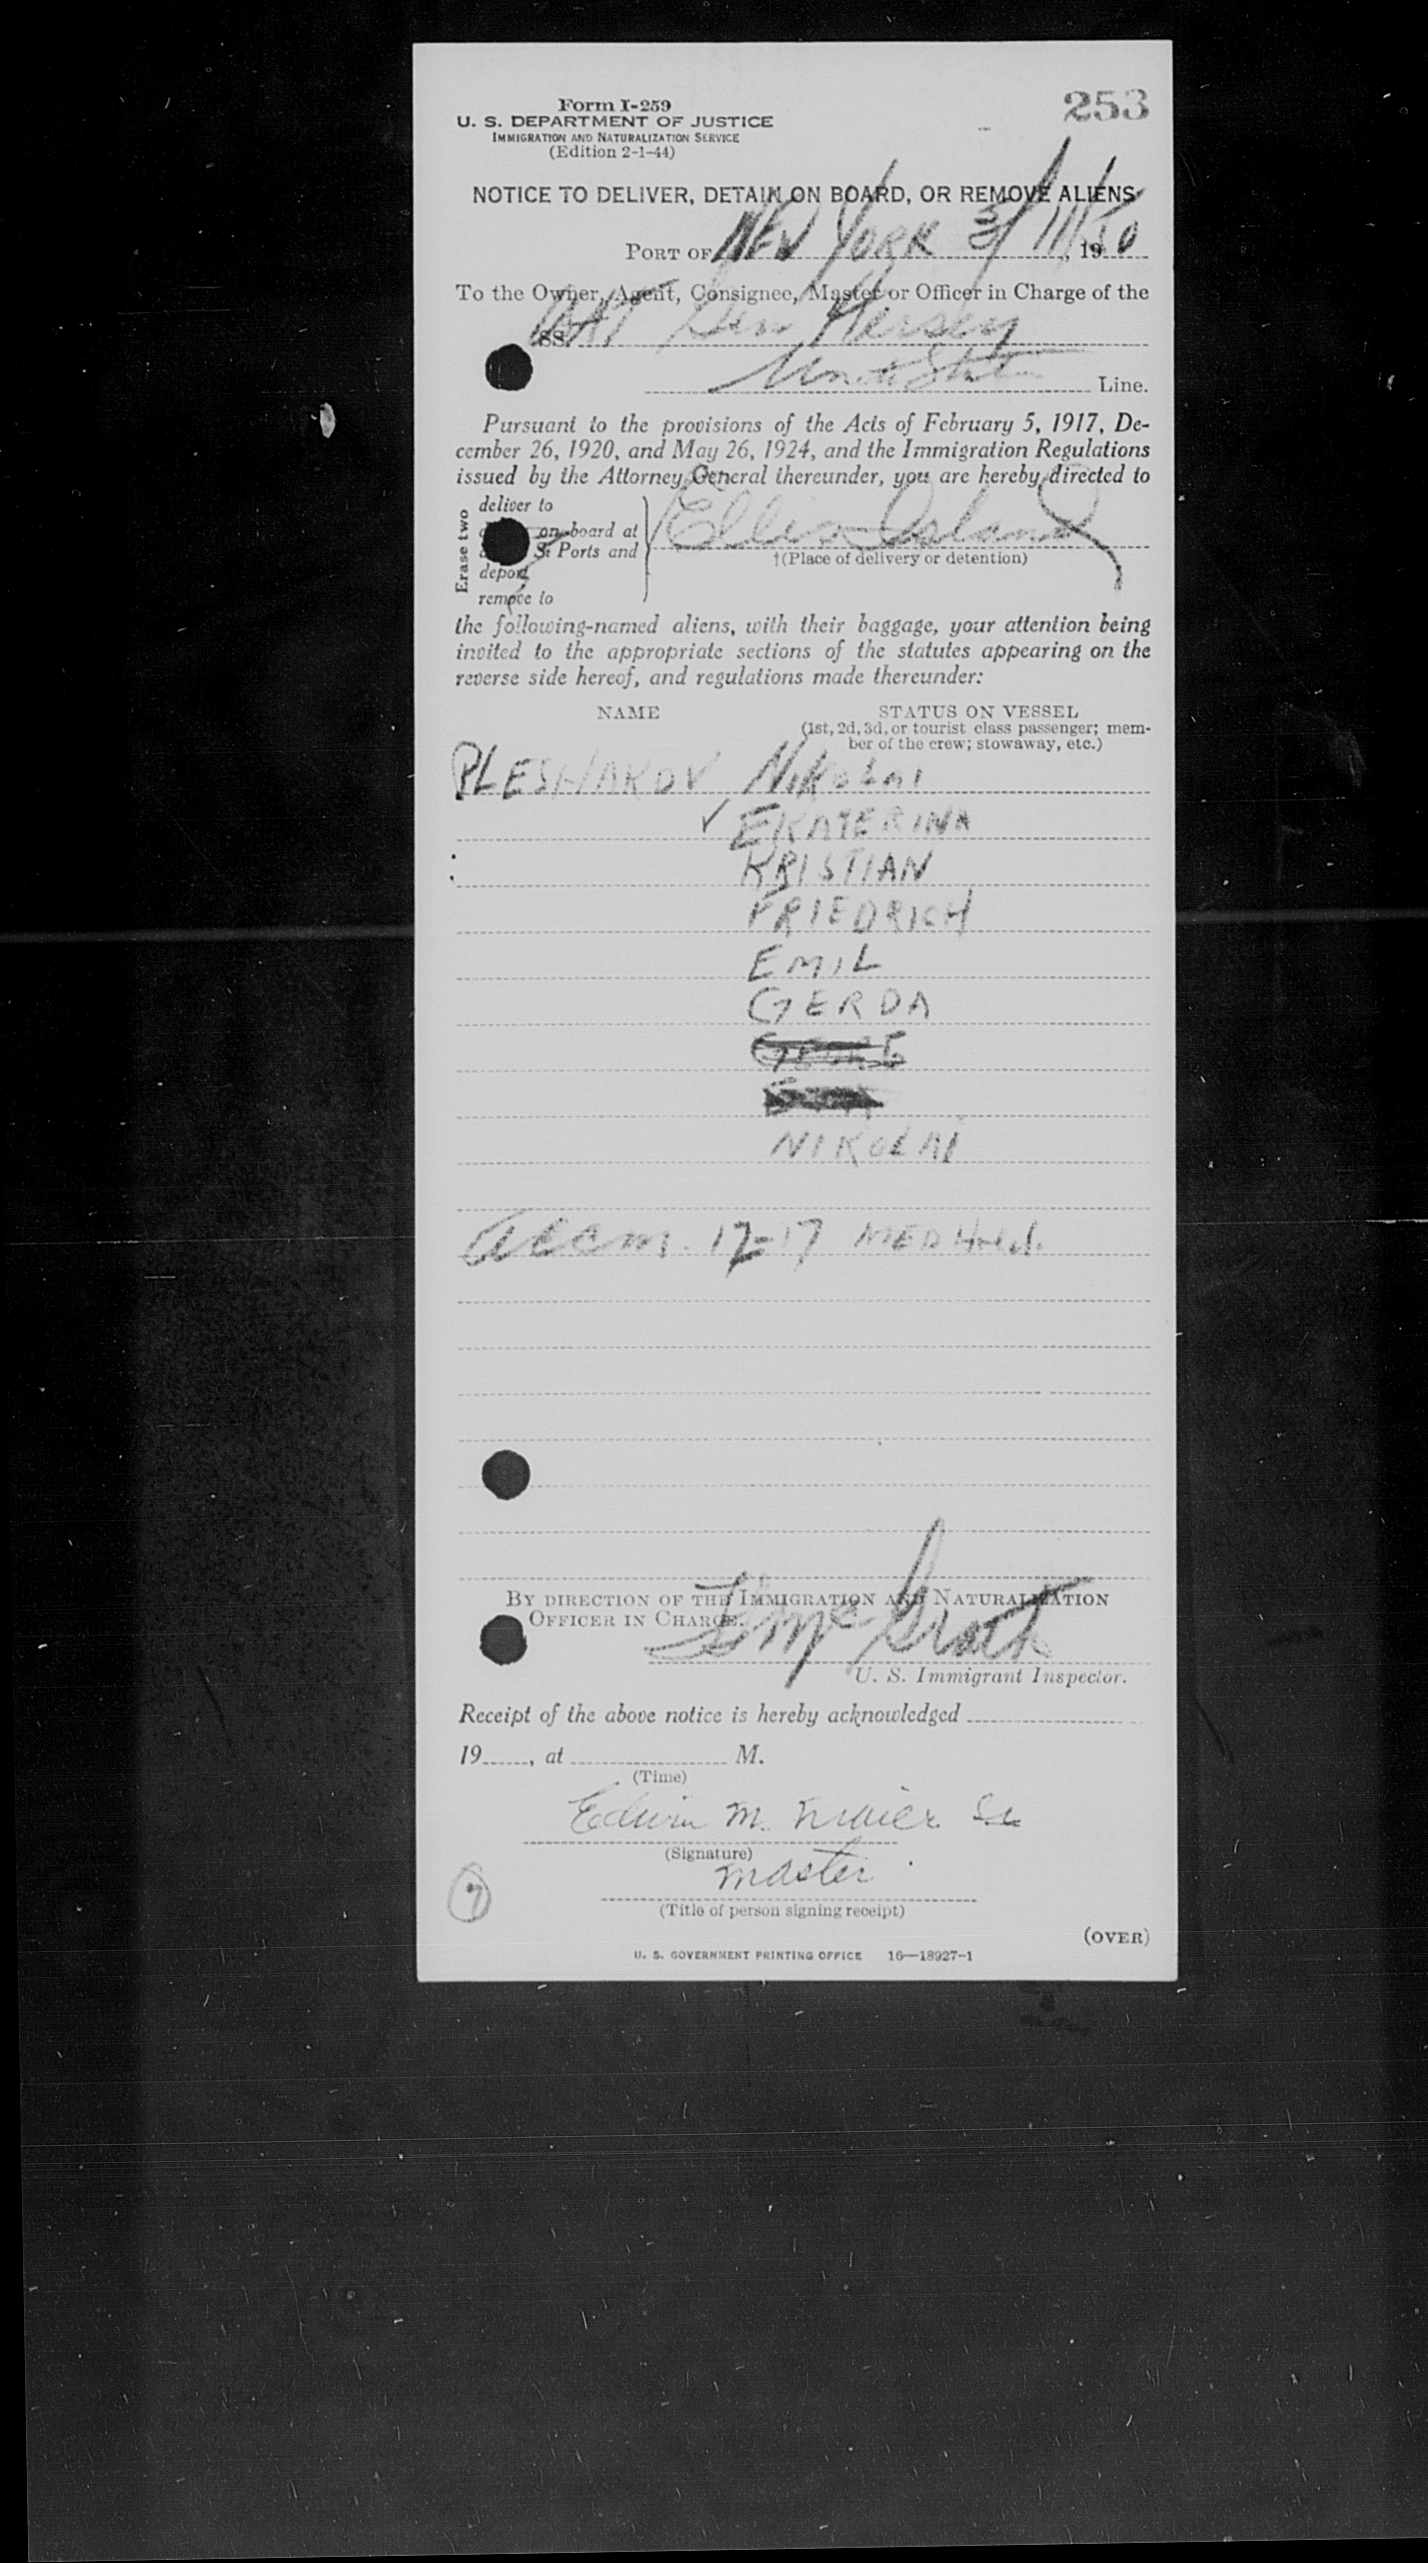 Form I-259
253
U. S. DEPARTMENT OF JUSTICE
IMMIGRATION AND NATURALIZATION SERVICE
(Edition 2-1-44)
NOTICE TO DELIVER, DETAIN ON BOARD, OR REMOVE ALIENS
PORT OF NEW YORK 3/11/50, 19
To the Owner, Agent, Consignee, Master or Officer in Charge of the
SS. Gen Hersey
Line.
Pursuant to the provisions of the Acts of February 5, 1917, De-
cember 26, 1920, and May 26, 1924, and the Immigration Regulations
issued by the Attorney General thereunder, you are hereby directed to
Erase two
deliver to
on board at
Ports and
deport
remove to
Ellis Island
†(Place of delivery or detention)
the following-named aliens, with their baggage, your attention being
invited to the appropriate sections of the statutes appearing on the
reverse side hereof, and regulations made thereunder:
NAME
STATUS ON VESSEL
(1st, 2d, 3d, or tourist class passenger; mem-
ber of the crew; stowaway, etc.)
PLESHAKOV NIKOLAI
✓ EKATERINA
KRISTIAN
FRIEDRICH
EMIL
GERDA
NIKOLAI
accm. 17-17 MED
BY DIRECTION OF THE IMMIGRATION AND NATURALIZATION
OFFICER IN CHARGE.
McGrath
U. S. Immigrant Inspector.
Receipt of the above notice is hereby acknowledged
19, at M.
(Time)
Edwin M.
(Signature)
master
(Title of person signing receipt)
7
(OVER)
U. S. GOVERNMENT PRINTING OFFICE 16—18927-1